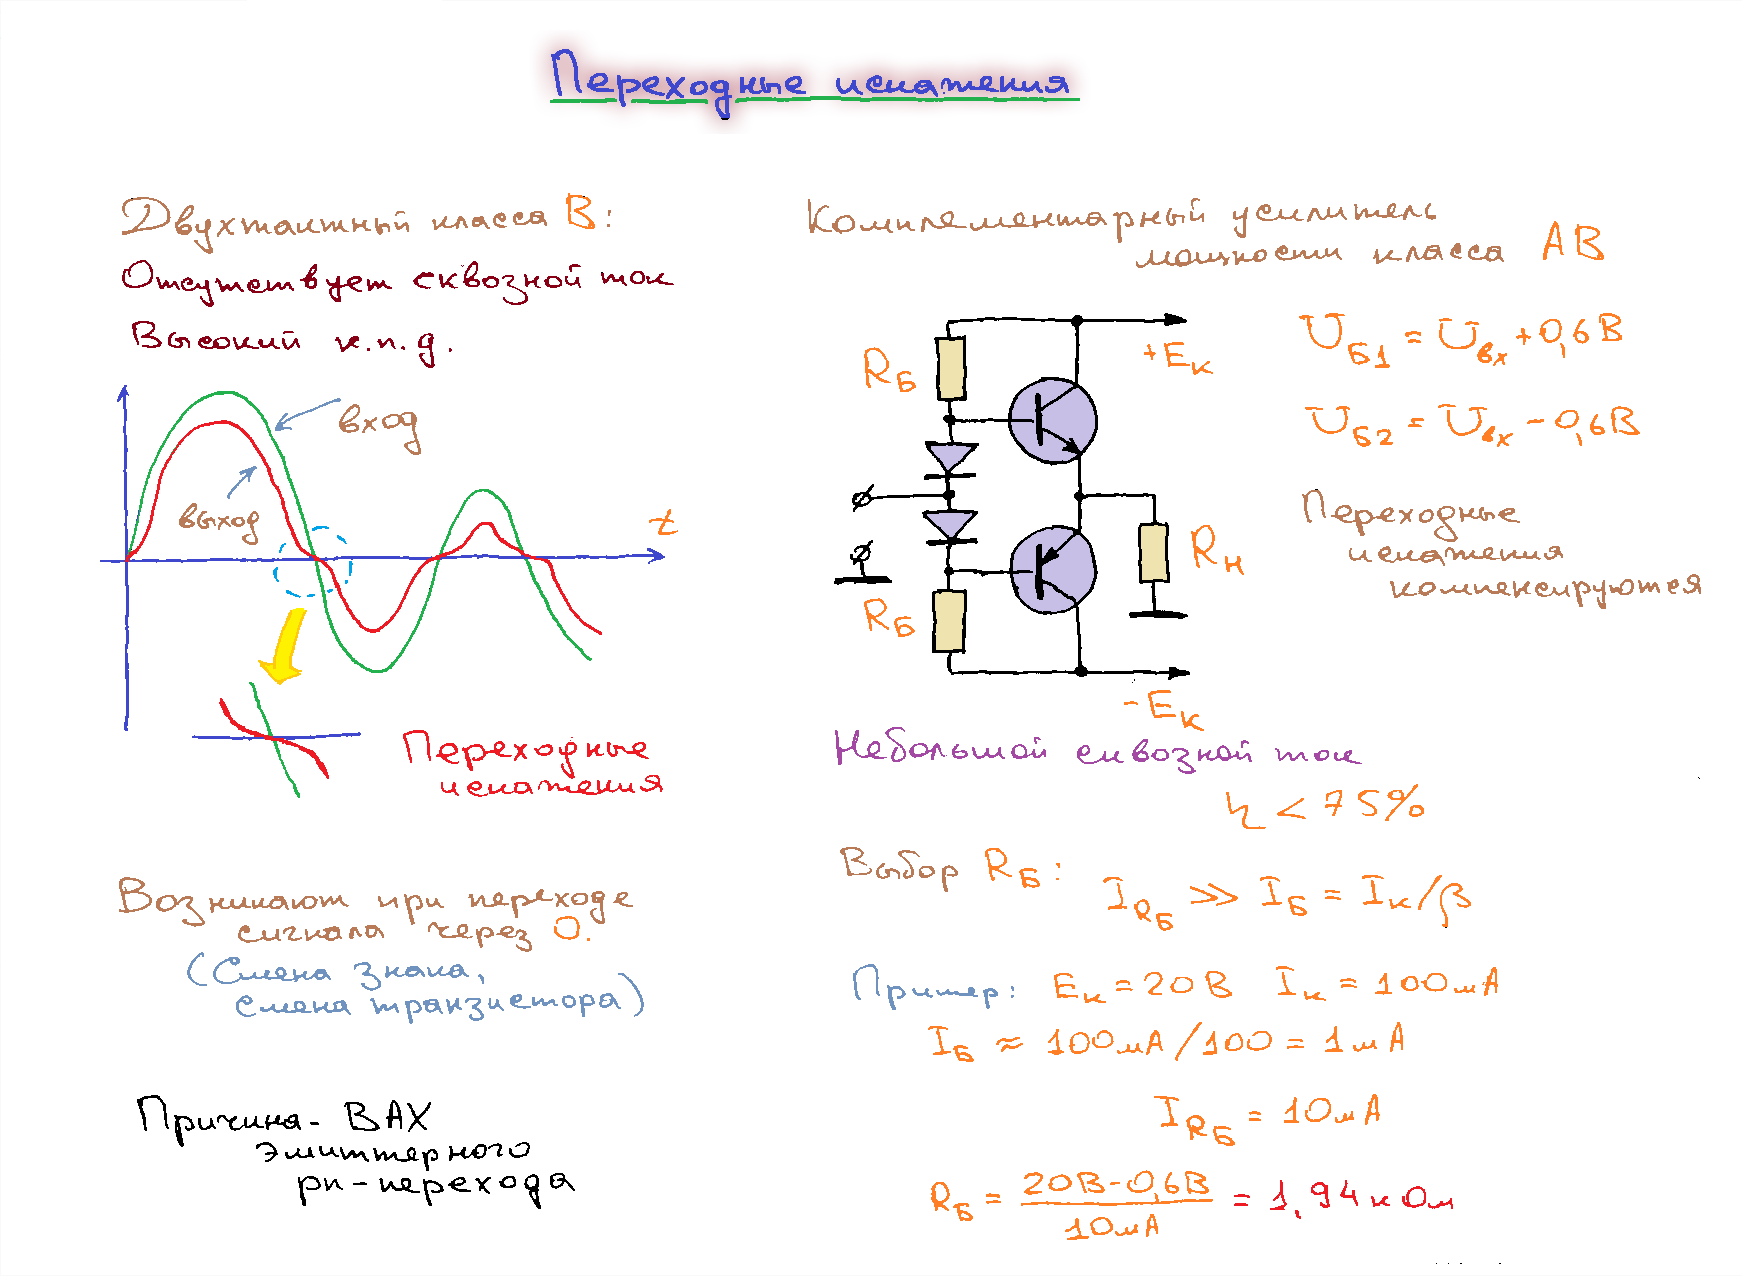 Переходные искажения
Двухтактный класса В:
Отсутствует сквозной ток
Высокий к.п.д.
вход
выход
t
Переходные
искажения
Возникают при переходе
сигнала через 0.
(Смена знака,
смена транзистора)
Причина - ВАХ
эмиттерного
pn-перехода
Комплементарный усилитель
мощности класса АВ
RБ
+Eк
UБ1 = Uвх + 0,6В
UБ2 = Uвх - 0,6В
Переходные
искажения
компенсируются
Rн
RБ
-Eк
Небольшой сквозной ток
η < 75%
Выбор RБ:
IRБ >> IБ = Iк/β
Пример: Eк = 20В Iк = 100мА
IБ ≈ 100мА/100 = 1мА
IRБ = 10мА
RБ = 20В-0,6В / 10мА = 1,94кОм